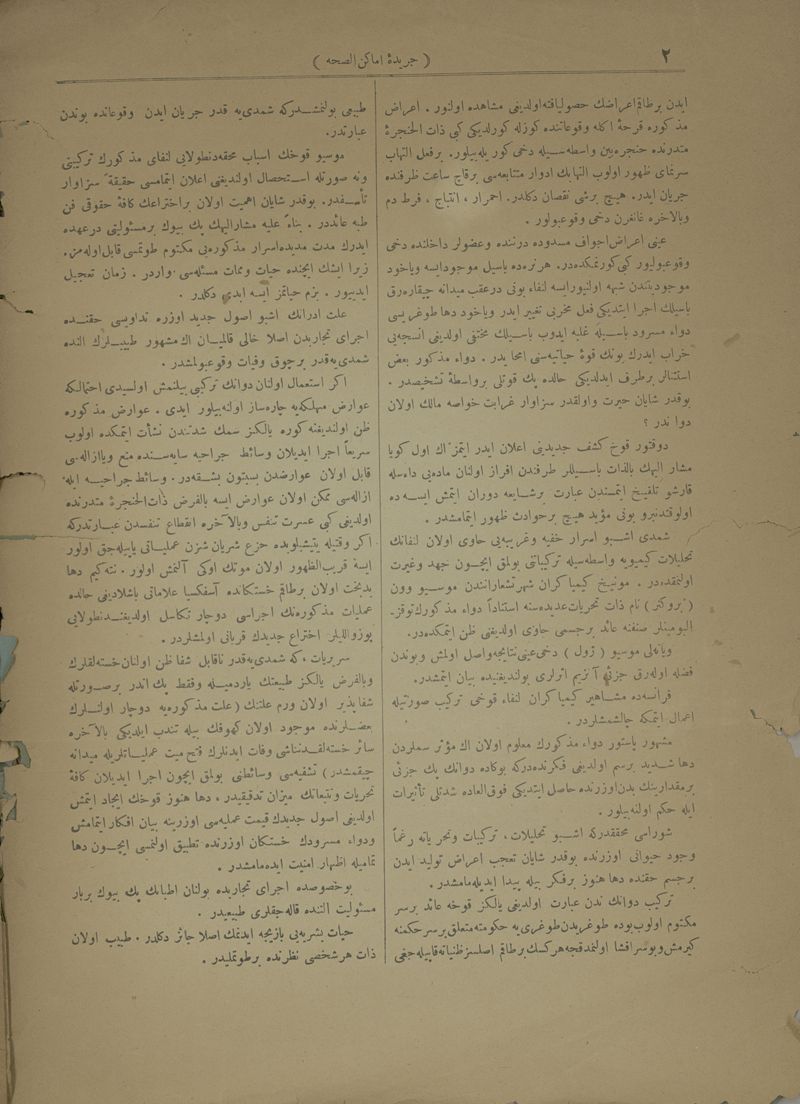 ٢
( جریدهٔ اماکن الصحه )
ایدن بر طاقم اعراضك حصولیافته اولدیغی مشاهده اولنور . اعراض
مذکوره قرحهٔ اکله وقوعاتنده کوزله کورلدیکی کبی ذات الحنجرهٔ
متدرنده حنجره بین واسطه‌سیله دخی کوریله بیلور. بر فعل التهاب
سرنمای ظهور اولوب التهابك ادوار متتابعه‌سی بر قاچ ساعت ظرفنده
جریان ایدر. هیچ برشی نقصان دکلدر. احمرار ، انتباج ، فرط دم
وبالاخره غانغرن دخی وقوعبولور .
عینی اعراض اجواف مسدوده درننده وعضولر داخلنده دخی
وقوعبولیور کبی کورنمکده‌در. هر نره‌ده باسیل موجود ایسه ویاخود
موجودیتندن شبهه اولنیور ایسه لنفاء بونی در عقب میدانه چیقاره‌رق
باسیلك اجرا ایتدیکی فعل مخربی تغییر ایدر ویاخود دها طوغریسی
دواء مسرود باسیله غلبه ایدوب باسیلك مختفی اولدیغی انسجه‌یی
خراب ایدرك بونك قوهٔ حیاتیه‌سنی امحا ایدر . دواء مذکور بعض
استثنالر برطرف ایدلدیکی حالده پك قوتلی بر واسطهٔ تشخیصدر .
بوقدر شایان حیرت واولقدر سزاوار غرابت خواصه مالك اولان
دوا ندر ؟
دوقتور قوخ کشف جدیدینی اعلان ایدر ایتمز اك اول کویا
مشار الیهك بالذات باسیللر طرفندن افراز اولنان ماده‌یی داءسله
قارشو تلقیح ایتمسندن عبارت بر شایعه دوران ایتمش ایسه‌ده
اولوقتدنبرو بونی مؤید هیچ بر حوادث ظهور ایتمامشدر .
شمدی اشبو اسرار خفیه وغریبه‌یی حاوی اولان لنفانك
تحلیلات کیمیویه واسطه‌سیله ترکیباتنی بولمق ایچون جهد وغیرت
اولنمقده‌در . مونیخ کیمیاکران شهرتشعارانندن موسیو وون
( بروکنر ) نام ذات تحریات عدیده‌سنه استناداً دواء مذکورك توقز
البومینلر صنفنه عائد بر جسمی حاوی اولدیغی ظن ایتمکده‌در.
ویانه‌لی موسیو ( ژول ) دخی عینی نتایجه واصل اولمش وبوندن
فضله اوله‌رق جزئی آنزیم اثرلری بولندیغنیده بیان ایتمشدر.
فرانسه‌ده مشاهیر کیمیاکران لنفاء قوخی ترکیب صورتیله
اعمال ایتمکه چالشمشلردر .
مشهور پاستور دواء مذکورك معلوم اولان اك مؤثر سملردن
دها شدید بر سم اولدیغی فکرنده‌درکه بوکاده دوانك پك جزئی
بر مقدارینك بدن اوزرنده حاصل ایتدیکی فوق العاده شدتلی تأثیرات
ایله حکم اولنه بیلور .
شوراسی محققدرکه اشبو تحلیلات ، ترکیبات وتحریاته رغماً
وجود حیوانی اوزرنده بوقدر شایان تعجب اعراض تولید ایدن
بر جسم حقنده دها هنوز بر فکر بیله پیدا ایدیله مامشدر .
ترکیب دوانك ندن عبارت اولدیغی یالکز قوخه عائد بر سر
مکتوم اولوب بوده طوغریدن طوغری‌یه حکومته متعلق بر سر حکمنه
کیرمش وبو سر افشا اولنمدقجه هر کسك بر طاقم اصلسز ظنیاته قاپیله جغی
طبیعی بولنمشدرکه شمدی‌یه قدر جریان ایدن وقوعاتده بوندن
عبارتدر.
موسیو قوخك اسباب محقه‌دنطولایی لنفای مذکورك ترکیبنی
ونه صورتله استحصال اولندیغنی اعلان ایتمامسی حقیقةً سزاوار
تأسفدر. بوقدر شایان اهمیت اولان بر اختراعك کافهٔ حقوقی فن
طبه عائددر . بناءً علیه مشار الیهك پك بیوك بر مسئولیتی درعهده
ایدرك مدت مدیده اسرار مذکوره‌یی مکتوم طوتمسی قابل اوله‌مز.
زیرا ایشك ایچنده حیات وممات مسئله‌سی واردر . زمان تعجیل
ایدییور . بزم حیاتمز ایسه ابدی دکلدر .
علت ادرانك اشبو اصول جدید اوزره تداویسی حقنده
اجرای تجاربدن اصلا خالی قالمیان اك مشهور طبیبلرك النده
شمدی‌یه قدر بر چوق وفیات وقوعبولمشدر .
اکر استعمال اولنان دوانك ترکیبی بیلنمش اولسیدی احتمالکه
عوارض مهلکه‌یه چاره‌ساز اولنه بیلور ایدی . عوارض مذکوره
ظن اولندیغنه کوره یالکز سمك شدتندن نشأت ایتمکده اولوب
سریعاً اجرا ایدیلان وسائط جراحیه سایه‌سنده منع ویا ازاله‌سی
قابل اولان عوارضدن بسبتون بشقه‌در . وسائط جراحیه ایله
ازاله‌سی ممکن اولان عوارض ایسه بالفرض ذات الحنجرهٔ متدرنده
اولدیغی کبی عسرت تنفس وبالاخره انقطاع تنفسدن عبارتدرکه
اکر وقتیله یتیشیلوبده خزع شریان شزن عملیاتی یاپیله جق اولور
ایسه قریب الظهور اولان موتك اوکی آلنمش اولور . نته کیم دها
بدبخت اولان بر طاقم خستکانده آسفکسیا علاماتی باشلادیغی حالده
عملیات مذکوره‌نك اجراسی دوچار تکاسل اولدیغندنطولایی
یوزواللیلر اختراع جدیدك قربانی اولمشلردر .
سریریات ، که شمدی‌یه قدر ناقابل شفا ظن اولنان خسته‌لقلرك
وبالفرض یالکز طبیعتك یاردمیله وفقط پك اندر بر صورتله
شفاپذیر اولان ورم علتنك ( علت مذکوره‌یه دوچار اولنلرك
بعضلرنده موجود اولان کهوفك بیله تندب ایلدیکی بالاخره
سائر خسته‌لقدن ناشی وفات ایدنلرك فتح میت عملیاتلریله میدانه
چیقمشدر ) تشفیه‌سی وسائطنی بولمق ایچون اجرا ایدیلان کافهٔ
تحریات وتتبعاتك میزان تدقیقیدر ، دها هنوز قوخك ایجاد ایتمش
اولدیغی اصول جدیدك قیمت عملیه‌سی اوزرینه بیان افکار ایتمامش
ودواء مسرودك خستکان اوزرنده تطبیق اولنمسی ایچون دها
تمامیله اظهار امنیت ایده‌مامشدر .
بوخصوصده اجرای تجاربده بولنان اطبانك پك بیوك بر بار
مسئولیت النده قاله جقلری طبیعیدر .
حیات بشریه‌یی بازیچه ایدنمك اصلا جائز دکلدر . طبیب اولان
ذات هر شخصی نظرنده بر طوتملیدر .